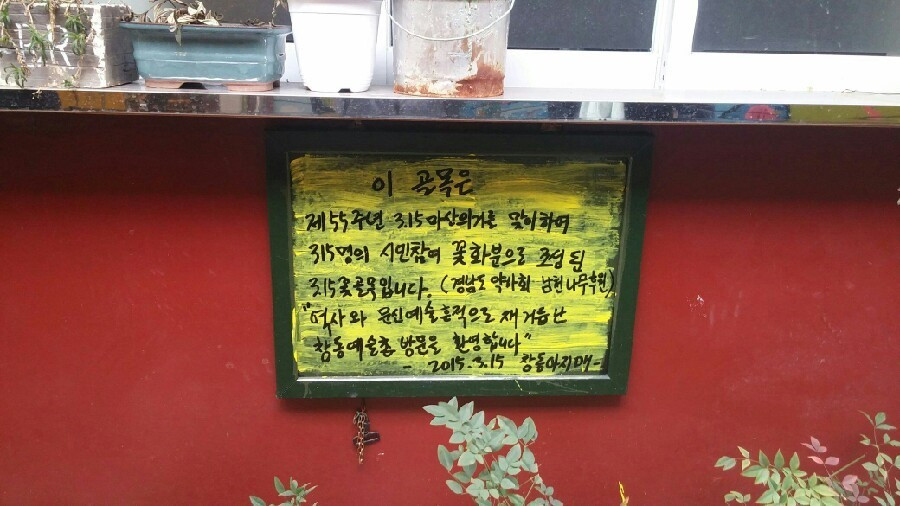 이 골목은
제55주년 3.15 마산의거를 맞이하여
315명의 시민참여 꽃화분으로 조성된
3.15꽃골목입니다. (경남도 약사회 남천나무후원)
"역사와 문신예술흔적으로 재거듭난
창동예술촌 방문을 환영합니다"
- 2015.3.15 창동아지매 -